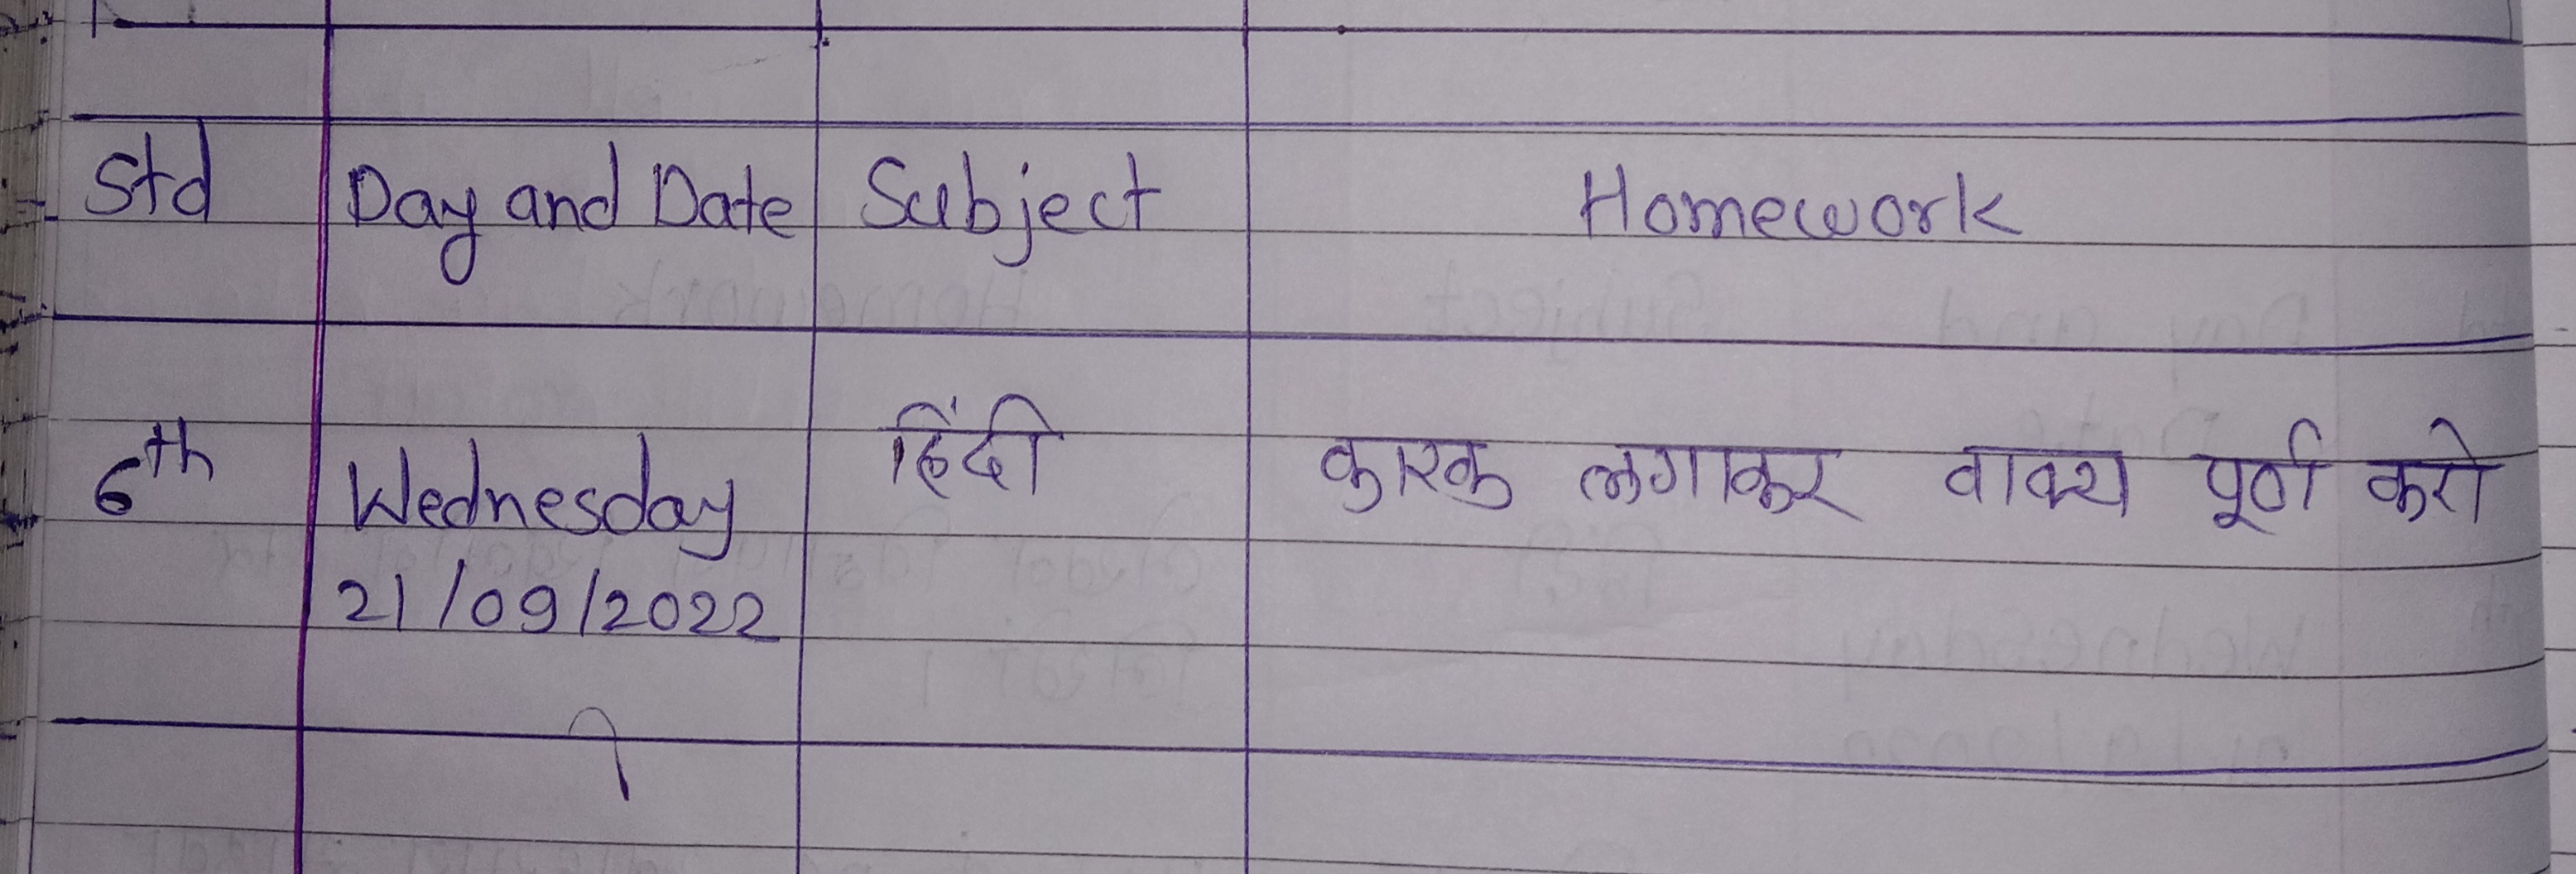 Std Day and Date Subject Homework
6th Wednesday हिंदी कारक लगाकर वाक्य पूर्ण करो
21/09/2022